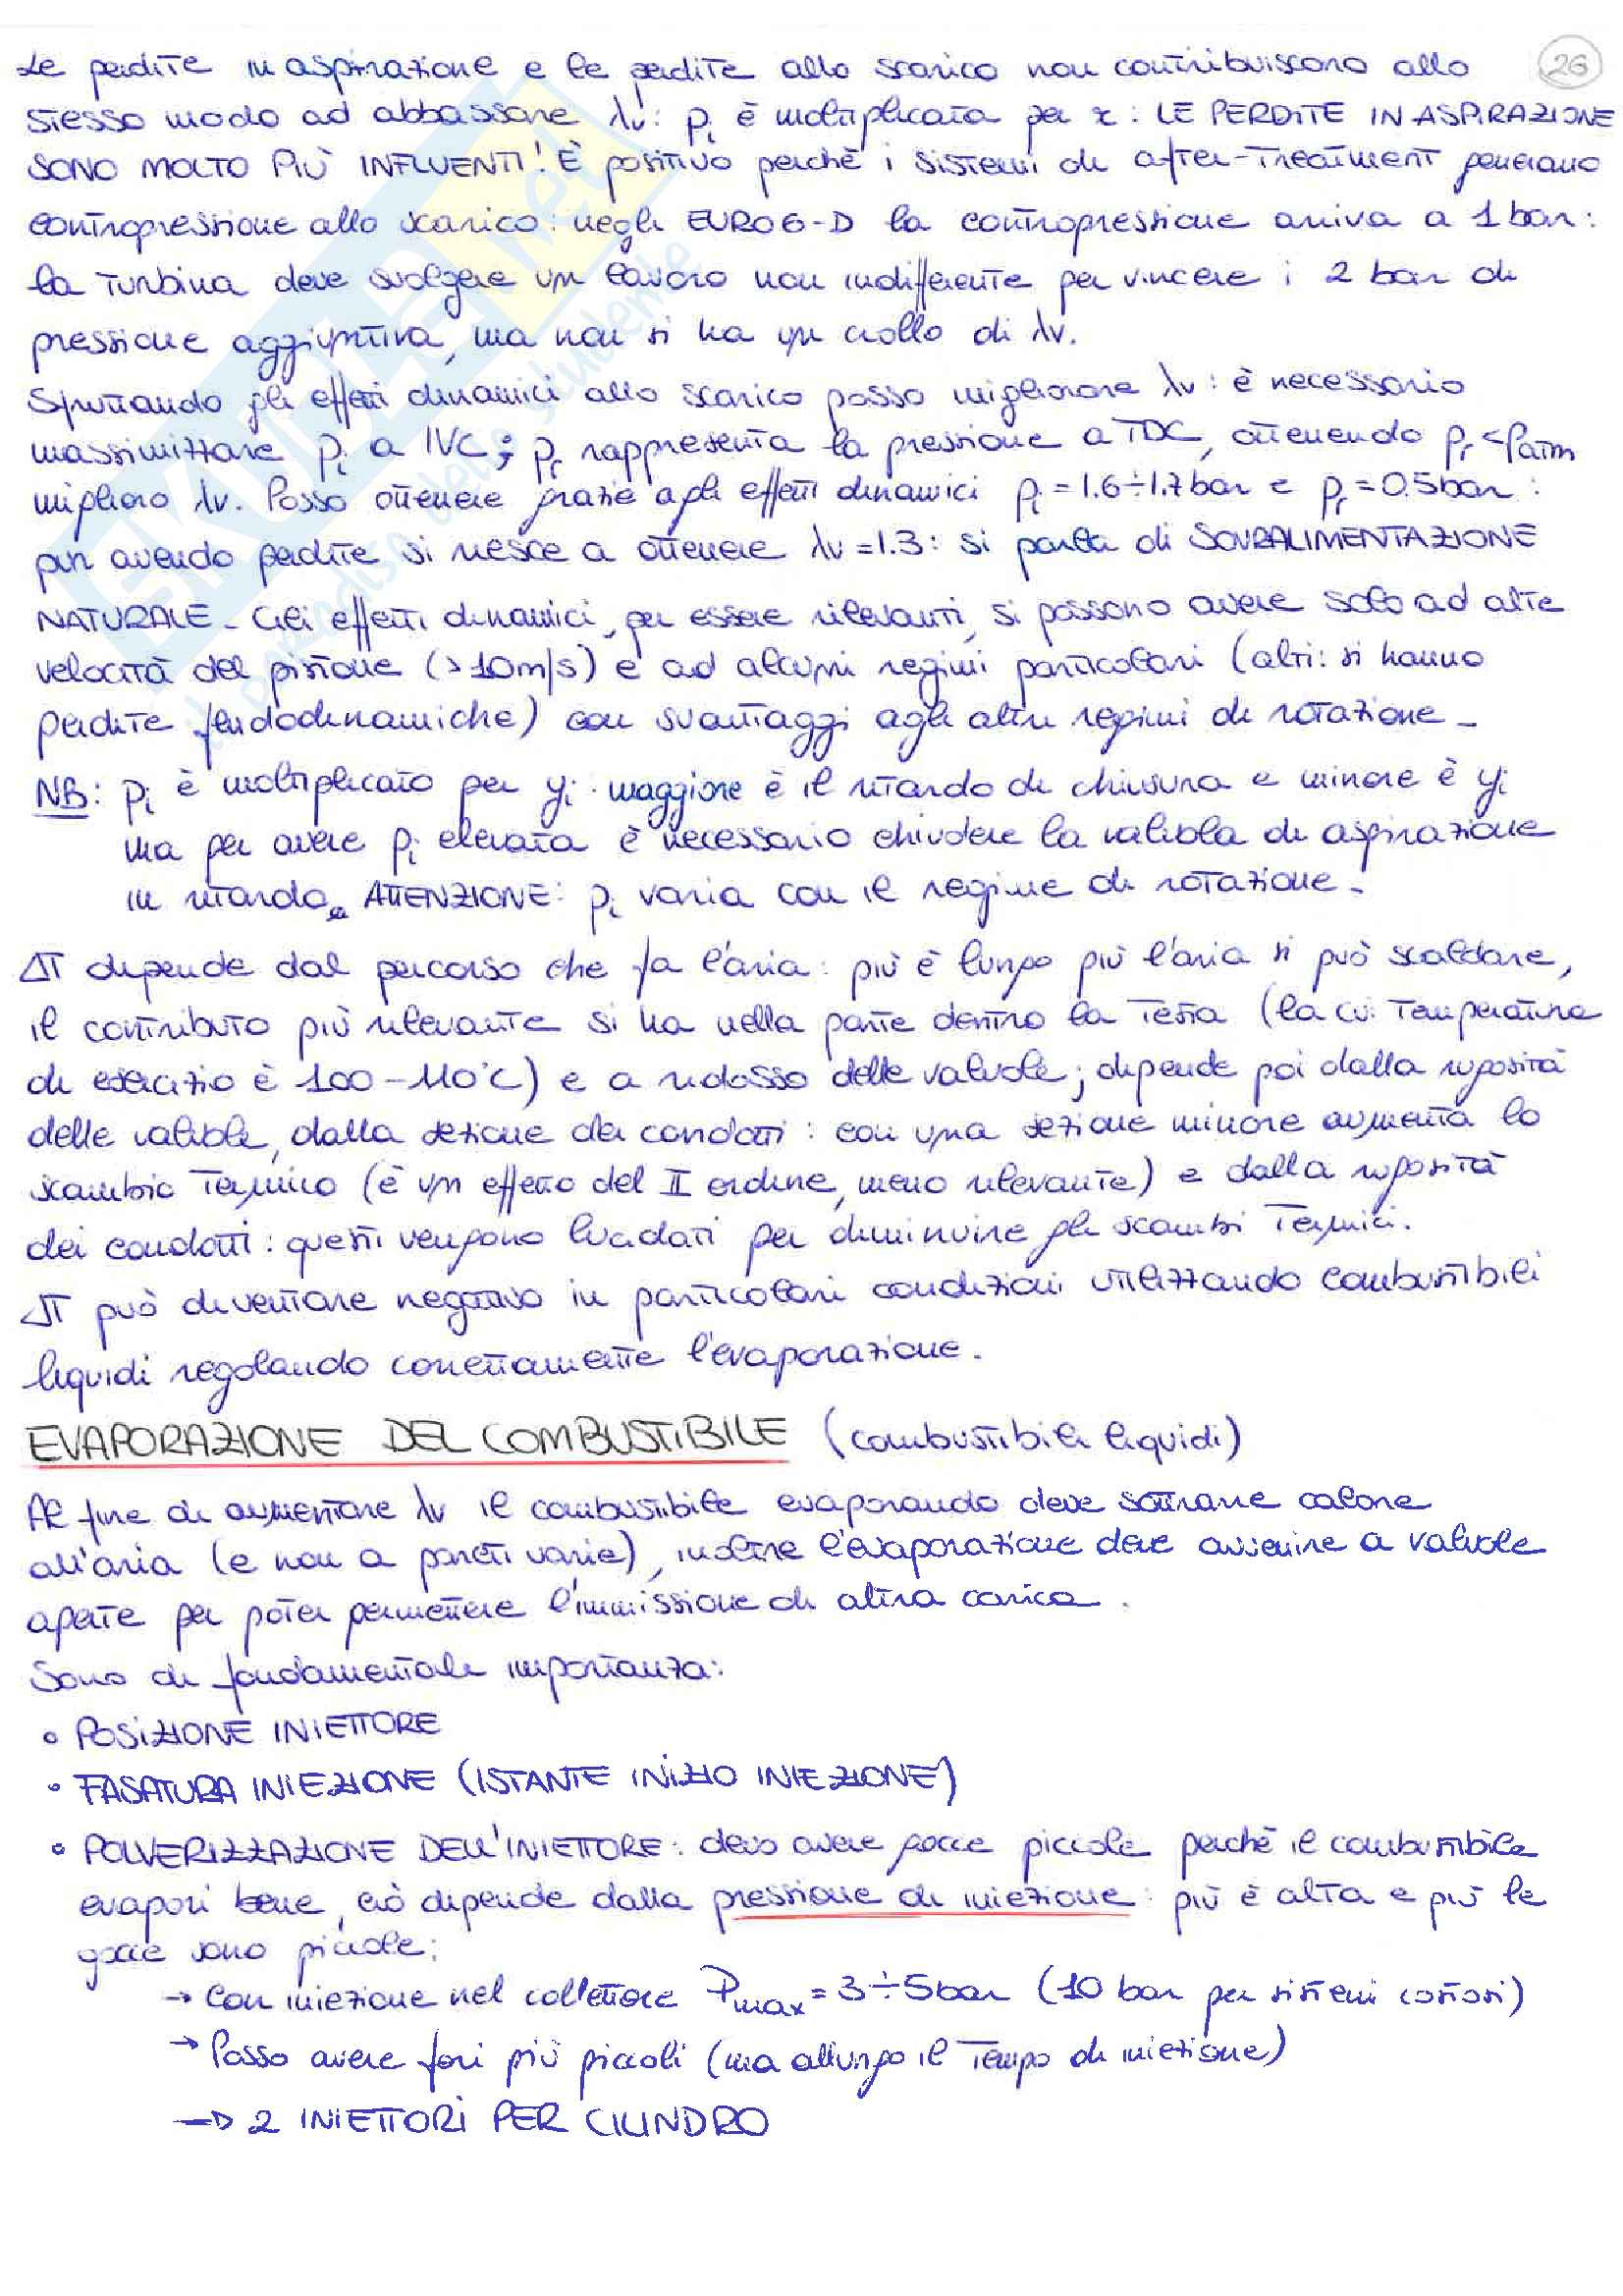 Le perdite in aspirazione e le perdite allo scarico non contribuiscono allo
26
stesso modo ad abbassare λv: pi è moltiplicata per r: LE PERDITE IN ASPIRAZIONE
SONO MOLTO PIÙ INFLUENTI! È positivo perchè i sistemi di after-treatment generano
contropressione allo scarico: negli EURO6-D la contropressione arriva a 1 bar:
la turbina deve svolgere un lavoro non indifferente per vincere i 2 bar di
pressione aggiuntiva, ma non si ha un crollo di λv.
Sfruttando gli effetti dinamici allo scarico posso migliorare λv: è necessario
massimizzare pi a IVC; pr rappresenta la pressione a TDC, ottenendo pr<patm
miglioro λv. Posso ottenere grazie agli effetti dinamici pi=1.6÷1.7bar e pr=0.5bar:
pur avendo perdite si riesce a ottenere λv=1.3: si parla di SOVRALIMENTAZIONE
NATURALE. Gli effetti dinamici, per essere rilevanti, si possono avere solo ad alte
velocità del pistone (>10m/s) e ad alcuni regimi particolari (altri: si hanno
perdite fluidodinamiche) con svantaggi agli altri regimi di rotazione.
NB: pi è moltiplicato per yi: maggiore è il ritardo di chiusura e minore è yi
ma per avere pi elevata è necessario chiudere la valvola di aspirazione
in ritardo. ATTENZIONE: pi varia con il regime di rotazione.
ΔT dipende dal percorso che fa l'aria: più è lungo più l'aria si può scaldare,
il contributo più rilevante si ha nella parte dentro la testa (la cui temperatura
di esercizio è 100-110°C) e a ridosso delle valvole; dipende poi dalla rugosità
delle valvole, dalla sezione dei condotti: con una sezione minore aumenta lo
scambio termico (è un effetto del II ordine, meno rilevante) e dalla rugosità
dei condotti: questi vengono lucidati per diminuire gli scambi termici.
ΔT può diventare negativo in particolari condizioni utilizzando combustibili
liquidi regolando correttamente l'evaporazione.
EVAPORAZIONE DEL COMBUSTIBILE (combustibili liquidi)
Al fine di aumentare λv il combustibile evaporando deve sottrarre calore
all'aria (e non a pareti varie), inoltre l'evaporazione deve avvenire a valvole
aperte per poter permettere l'immissione di altra carica.
Sono di fondamentale importanza:
• POSIZIONE INIETTORE
• FASATURA INIEZIONE (ISTANTE INIZIO INIEZIONE)
• POLVERIZZAZIONE DELL'INIETTORE: devo avere gocce piccole perchè il combustibile
evapori bene, ciò dipende dalla pressione di iniezione: più è alta e più le
gocce sono piccole:
→ Con iniezione nel collettore Pmax=3÷5bar (10 bar per sistemi costosi)
→ Posso avere fori più piccoli (ma allungo il tempo di iniezione)
→ 2 INIETTORI PER CILINDRO